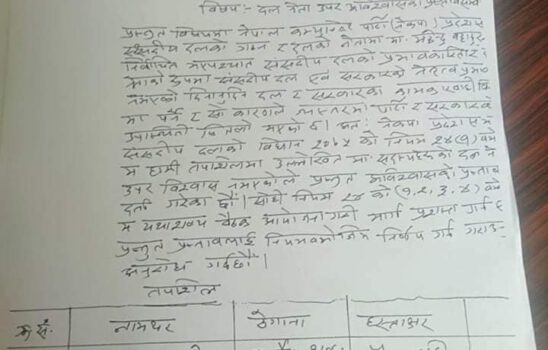 विषय:- दल नेता उपर अविश्वासको प्रस्ताव
प्रस्तुत विषयमा नेपाल कम्युनिष्ट पार्टी (नेकपा) प्रदेशसभा
संसदीय दलको गठन र दलको नेतामा मा. महेन्द्र बहादुर
निर्वाचित भएपश्चात संसदीय दलको प्रभावकारिता र
संसदीय दल एवं सरकारको नेतृत्व
नभएको दिनानुदिन दल र सरकारको कामकारवाही
मा पर्न र सो कारणले पार्टी र सरकारको
उपस्थिती भएको छ। अत: नेकपा प्रदेश
संसदीय दलको विधान २०७५ को नियम २४(१) बमो
म हामी तपशिलमा उल्लेखित मा. सदस्यहरुको दल ने
उपर विश्वास नभएकोले प्रस्तुत अविश्वासको प्रस्ताव
दर्ता गरेका छौं। सोही नियम २४ को (१,२,३,४) बमो
म यथाशक्य बैठक आयोजना गरी मार्ग प्रशस्त गर्न र
प्रस्तुत प्रस्तावलाई नियमबमोजिम निर्णय गर्न गराउन
अनुरोध गर्दछौं।
तपशिल
क्र.सं. नामथर ठेगाना हस्ताक्षर